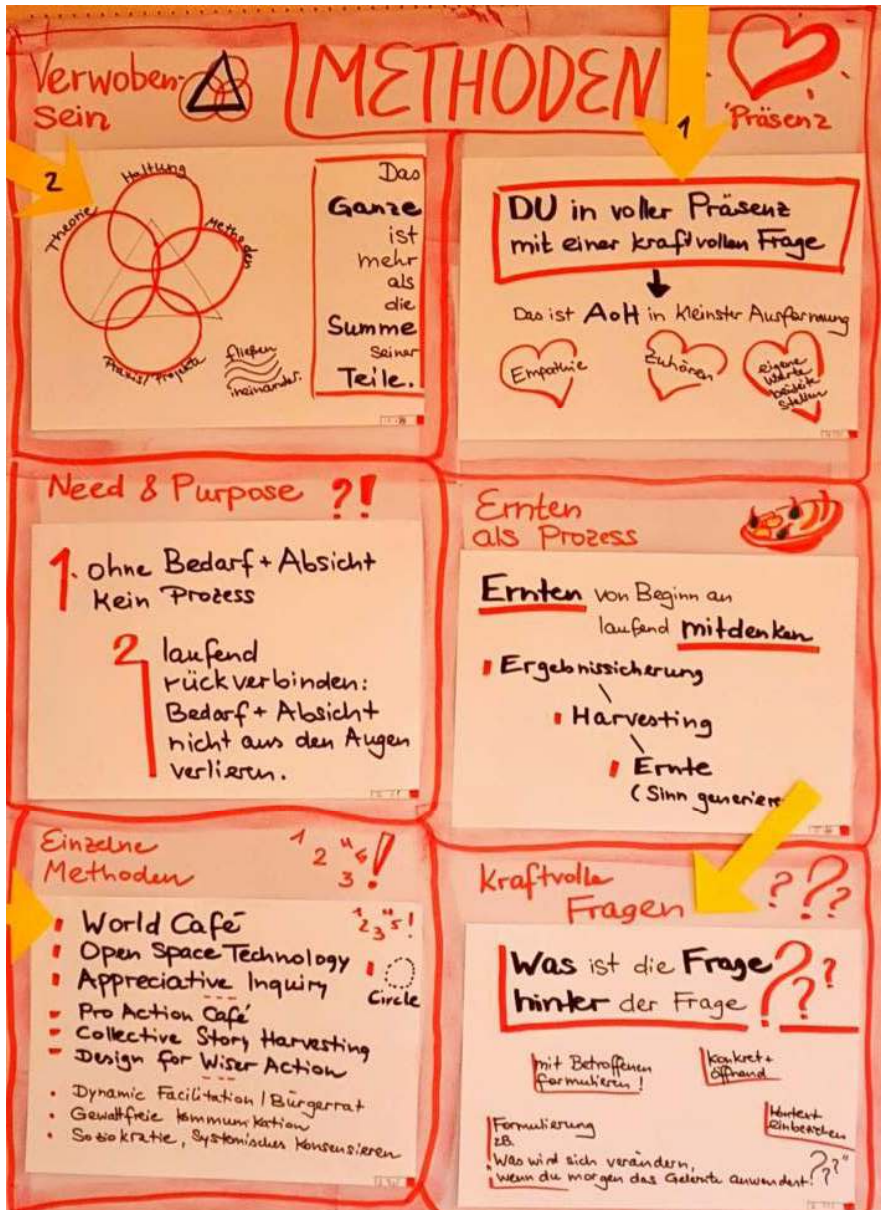 METHODEN
Verwoben-
Sein
2
Haltung
Theorie
Methoden
Praxis/Projekte
fließen
ineinander.
Das
Ganze
ist
mehr
als
die
Summe
seiner
Teile.
1
Präsenz
DU in voller Präsenz
mit einer kraftvollen Frage
Das ist AoH in kleinster Ausformung
Empathie
Zuhören
eigene
Werte
beiseite
stellen
Need & Purpose ?!
1. ohne Bedarf + Absicht
kein Prozess
2 laufend
rückverbinden:
Bedarf + Absicht
nicht aus den Augen
verlieren.
Ernten
als Prozess
Ernten von Beginn an
laufend mitdenken
Ergebnissicherung
Harvesting
Ernte
(Sinn generieren
Einzelne
Methoden
1 2 3 4 !
World Café
1 2 3 4 5 !
Open Space Technology
Appreciative Inquiry
Circle
Pro Action Café
Collective Story Harvesting
Design for Wiser Action
Dynamic Facilitation / Bürgerrat
Gewaltfreie Kommunikation
Soziokratie, Systemisches Konsensieren
Kraftvolle
Fragen
???
Was ist die Frage
hinter der Frage
???
mit Betroffenen
formulieren!
konkret +
öffnend
Kontext
einbeziehen
Formulierung
zB.
Was wird sich verändern,
wenn du morgen das Gelernte anwendest?
???